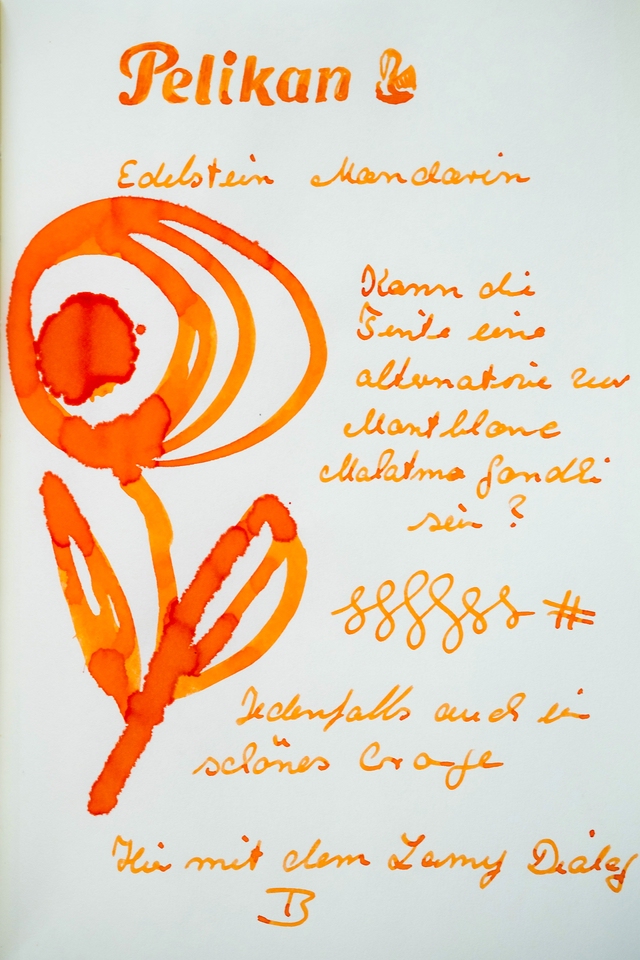 Pelikan
Edelstein Mandarin
Kann die
Tinte eine
alternatoive zur
Montblanc
Mahatma Gandhi
sein ?
#
Jedenfalls auch ein
schönes Orange
Hier mit dem Lamy Dialog
B